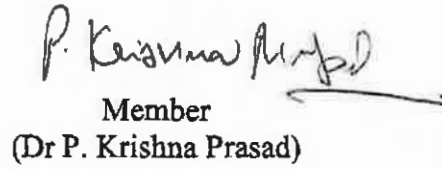 P. Krishna Prasad
Member
(Dr P. Krishna Prasad)